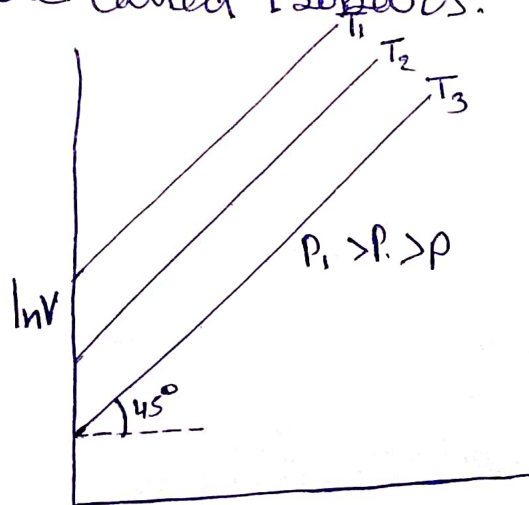 called Isobars.
T₁
T₂
T₃
P₁ >P. >P
lnV
45°